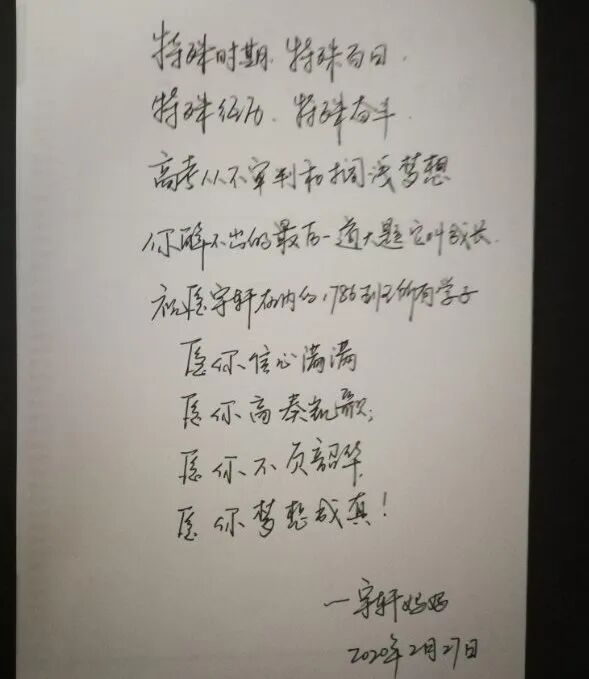 特殊时期、特殊百日.
特殊经历、特殊奋斗.
高考从不审判和搁浅梦想
你解不出的最后一道大题它叫成长.
祝愿宇轩在内的1786班所有学子
愿你信心满满
愿你高奏凯歌;
愿你不负韶华
愿你梦想成真!
—宇轩妈妈
2020年2月27日